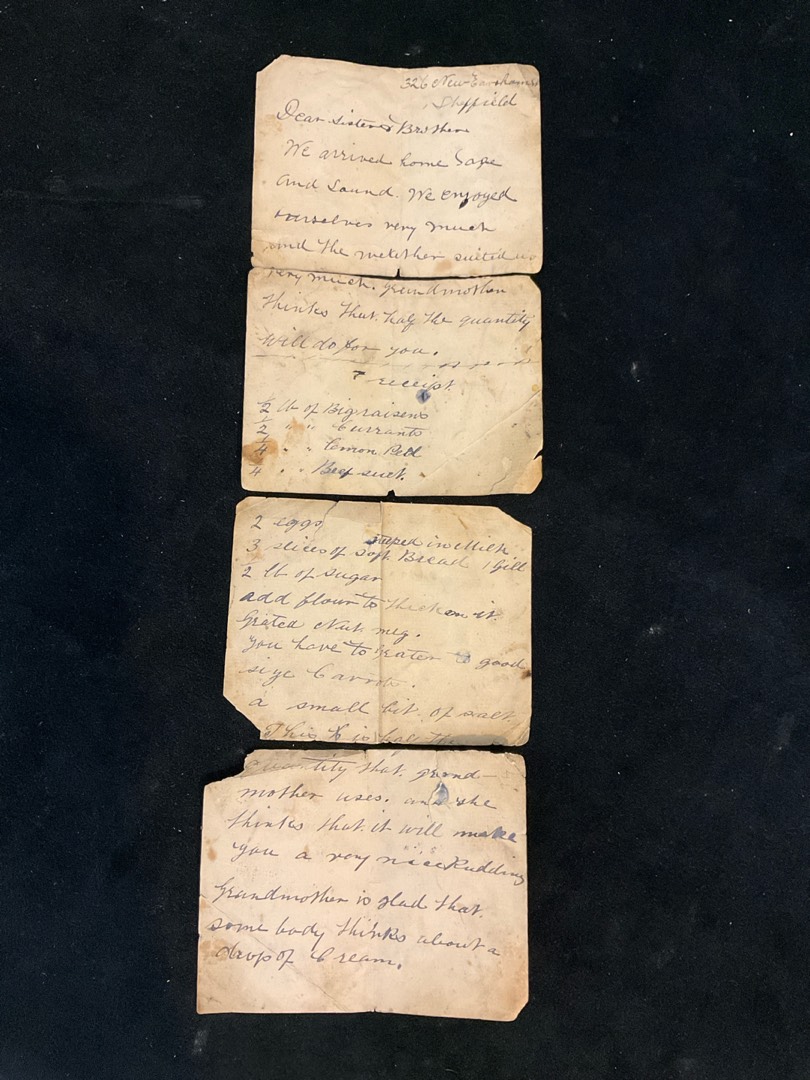 326 New
Sheffield
Dear Sister & Brother
We arrived home Safe
and Sound. We enjoyed
ourselves very much
and the wether suited us
very much. Grandmother
thinks that half the quantity
will do for you.
receipt.
1/2 lb of Big raisens
1/2 " " Currants
1/4 " " Lemon Peel
1/4 " " Beef suet.
2 eggs
steeped in Milk
3 slices of soft Bread 1 Gill
2 lb of sugar
add flour to thicken it.
Grated Nut meg.
you have to grater a good
size Carrot.
a small bit of salt
This is half the
quantity that grand-
mother uses. and she
thinks that it will make
you a very nice Pudding
Grandmother is glad that
some body thinks about a
drop of Cream.